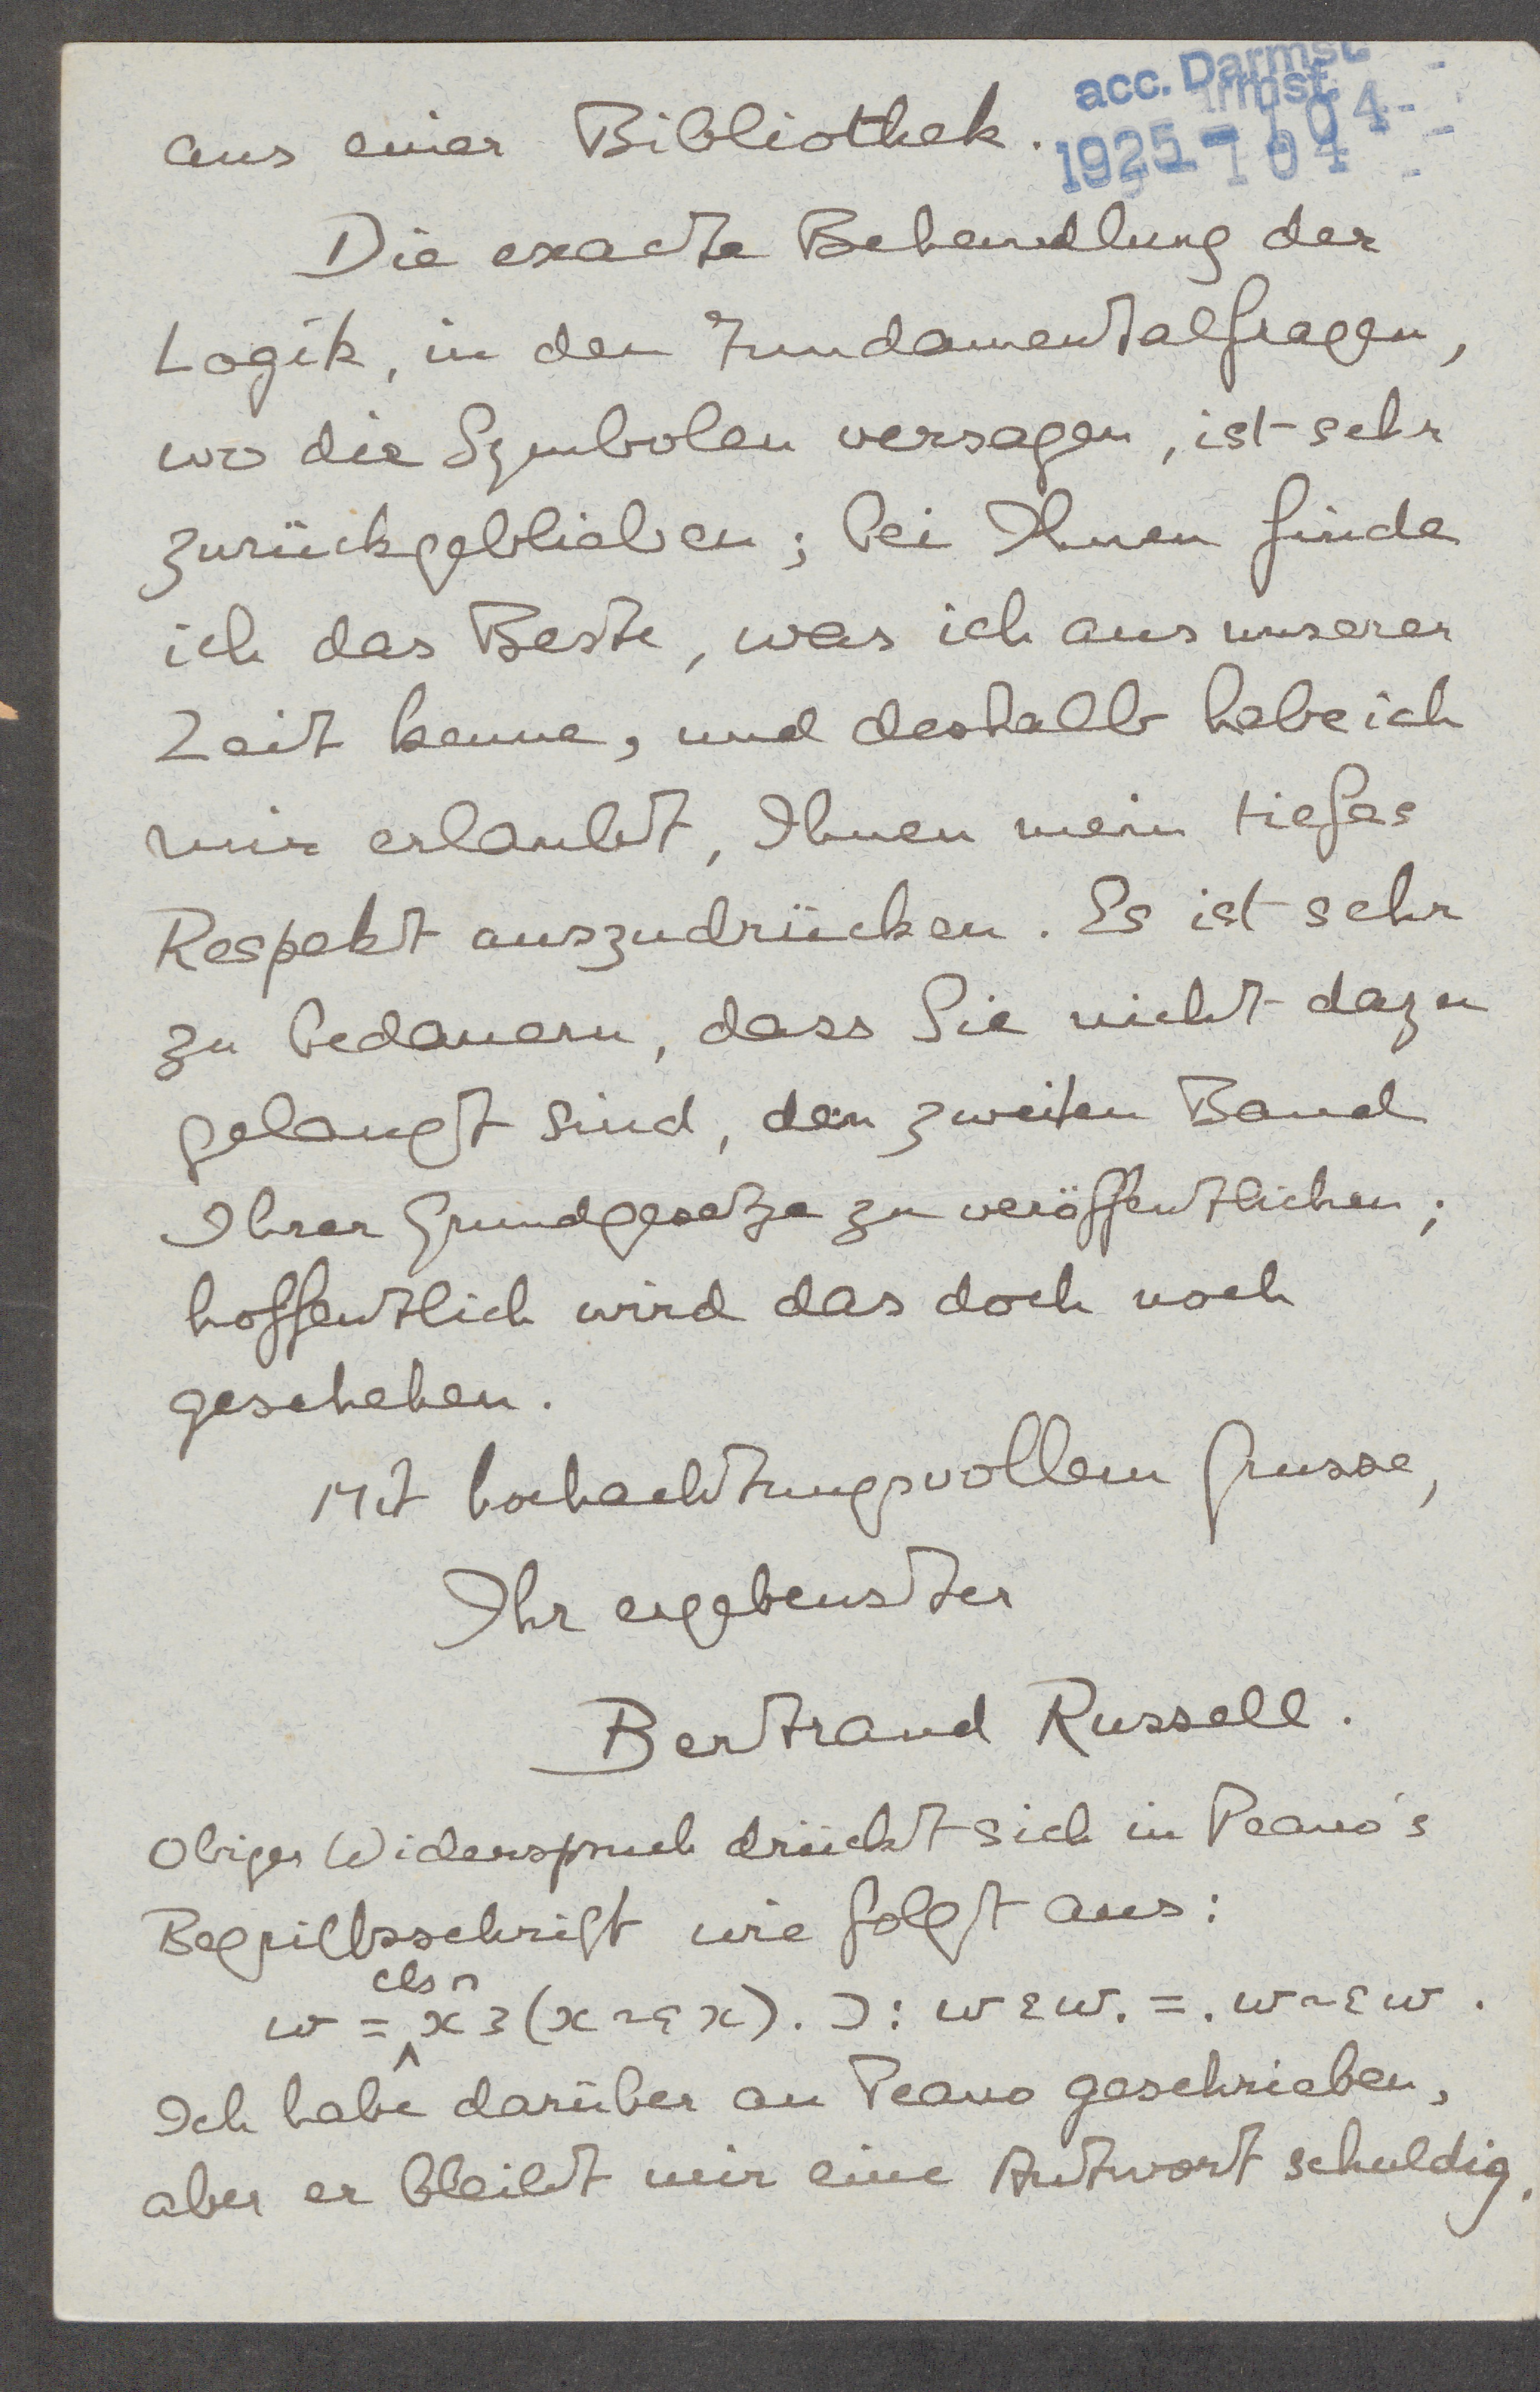 acc. Darmst.
1925-104
aus einer Bibliothek.
Die exacte Behandlung der
Logik, in den Fundamentalfragen,
wo die Symbolen versagen, ist sehr
zurückgeblieben; bei Ihnen finde
ich das Beste, was ich aus unserer
Zeit kenne, und deshalb habe ich
mir erlaubt, Ihnen mein tiefes
Respekt auszudrücken. Es ist sehr
zu bedauern, dass Sie nicht dazu
gelangt sind, den zweiten Band
Ihrer Grundgesetze zu veröffentlichen;
hoffentlich wird das doch noch
geschehen.
Mit hochachtungsvollem Grusse,
Ihr ergebenster
Bertrand Russell.
Obiger Widerspruch drückt sich in Peano's
Begriffsschrift wie folgt aus:
w = cls ∩ x ɜ (x ~ε x). Ɔ : w ε w. =. w ~ε w.
Ich habe darüber an Peano geschrieben,
aber er bleibt mir eine Antwort schuldig.